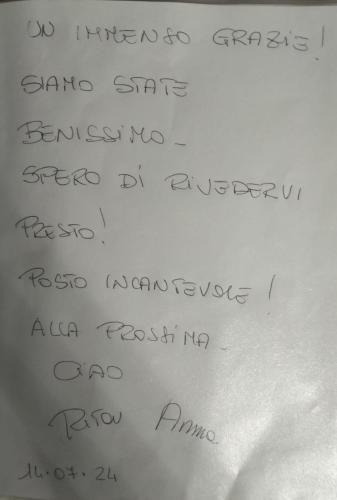 UN IMMENSO GRAZIE!
SIAMO STATE
BENISSIMO -
SPERO DI RIVEDERVI
PRESTO!
POSTO INCANTEVOLE!
ALLA PROSSIMA -
CIAO
Anna
14.07.24